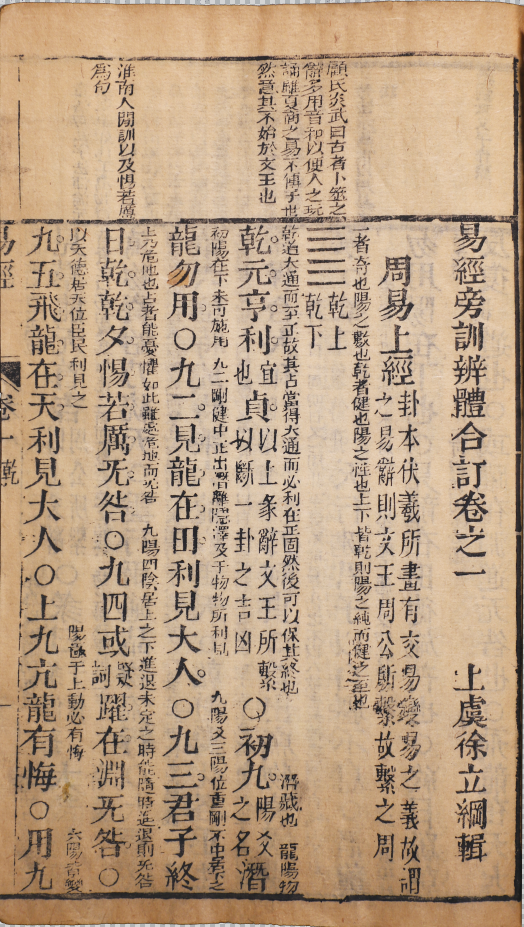 顧氏炎武曰古者卜筮之
辭多用音和以便人之玩
誦雖夏商之易不傳于世
然意其不始於文王也
淮南人間訓以及惕若厲
為句
易經旁訓辨體合訂卷之一 上虞徐立綱輯
周易上經 卦本伏羲所畫有交易變易之義故謂
之易辭則文王周公所繫故繫之周
一者奇也陽之數也乾者健也陽之性也上下皆乾則陽之純而健之至也
乾上
乾下
乾道大通而至正故其占當得大通而必利在正固然後可以保其終也
潛藏也 龍陽物
乾元亨利宜也貞以上彖辭文王所繫以斷一卦之吉凶○初九陽爻之名潛
初陽在下未可施用 九二剛健中正出潛離隱澤及于物物所利見 九陽爻三陽位重剛不中居下之
龍勿用○九二見龍在田利見大人○九三君子終
上乃危地也占者能憂懼如此雖處危地而无咎 九陽四陰居上之下進退未定之時能隨時進退則无咎
日乾乾夕惕若厲无咎○九四或疑詞躍在淵无咎○
以天德居天位臣民利見之 陽極于上動必有悔 六陽皆變
九五飛龍在天利見大人○上九亢龍有悔○用九
易經 卷一 乾